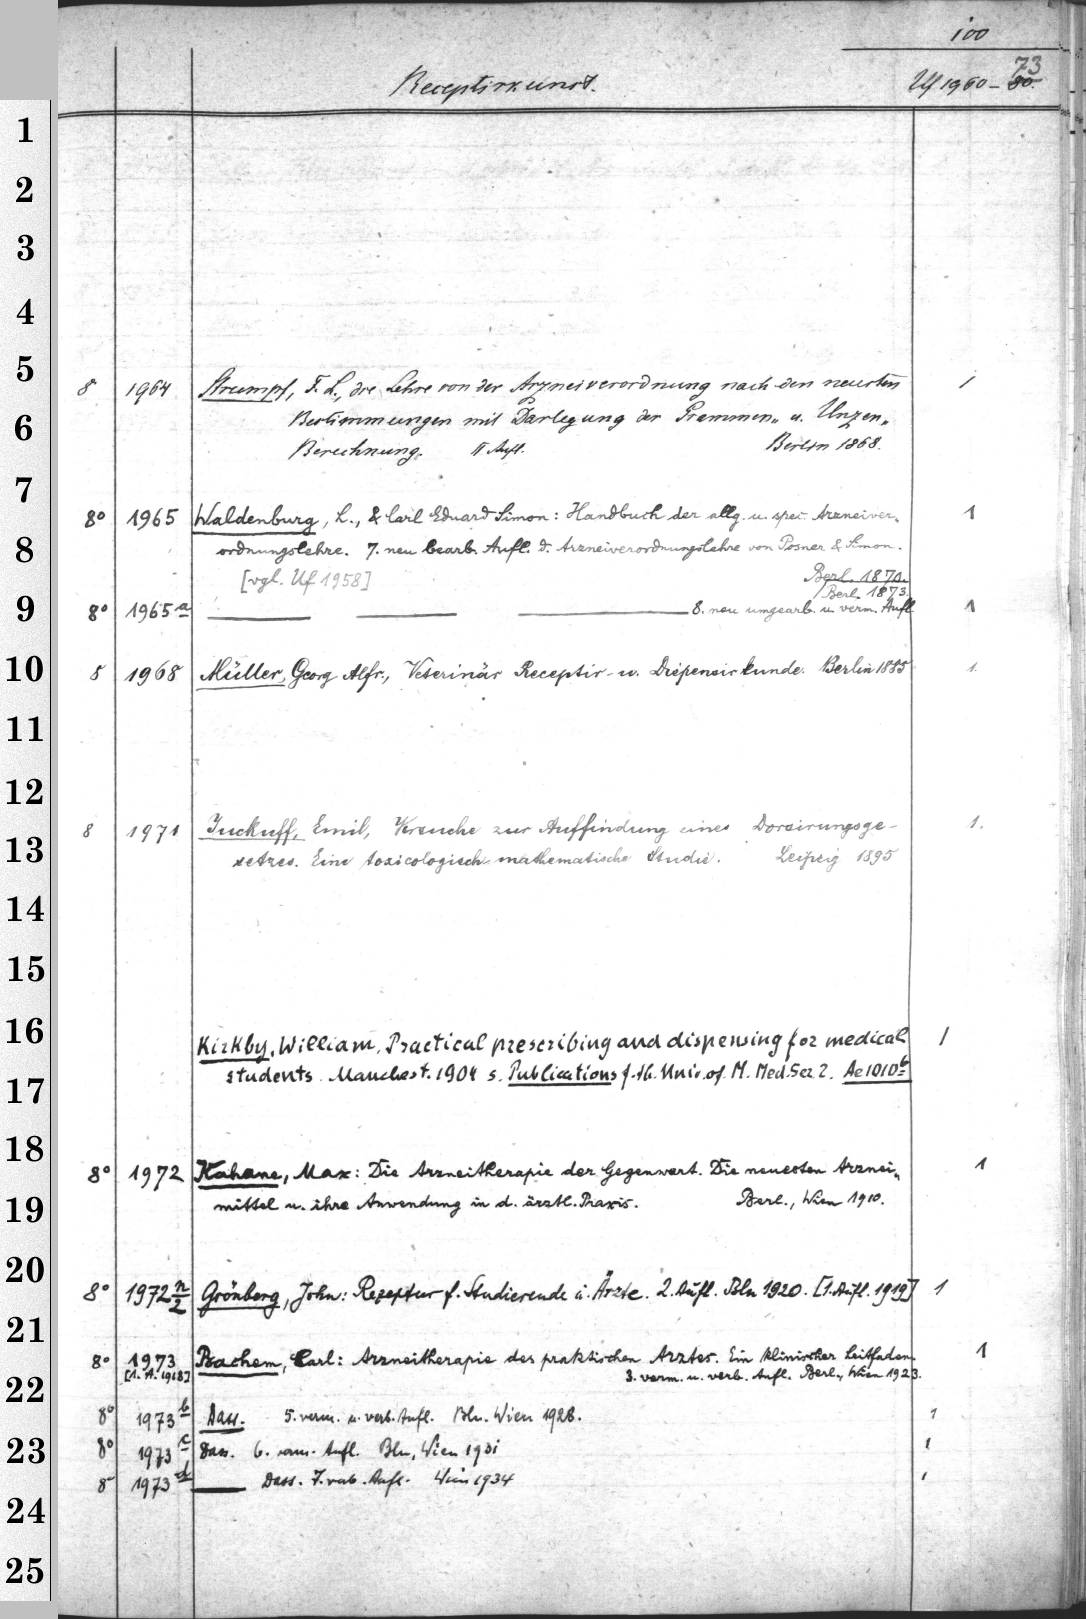 100
Receptirkunst.
Uf 1960–80. 73
1
2
3
4
5
8° 1964 Strumpf, F. L., die Lehre von der Arzneiverordnung nach den neusten 1
6
Bestimmungen mit Darlegung der Grammen- u. Unzen-
Berechnung. II Aufl. Berlin 1868.
7
8° 1965 Waldenburg, L., & Carl Eduard Simon: Handbuch der allg. u. spec. Arzneiver- 1
8
ordnungslehre. 7. neu bearb. Aufl. d. Arzneiverordnungslehre von Posner & Simon.
[vgl. Uf 1958] Berl. 1870.
Berl. 1873.
9
8° 1965 a 8. neu umgearb. u. verm. Aufl 1
10
8 1968 Müller, Georg Alfr., Veterinär Receptir- u. Dispensirkunde. Berlin 1885 1.
11
12
8 1971 Juckuff, Emil, Versuche zur Auffindung eines Dosirungsge- 1.
13
setzes. Eine toxicologisch mathematische Studie. Leipzig 1895
14
15
16
Kirkby, William, Practical prescribing and dispensing for medical 1
17
students. Manchest. 1904 s. Publications f. th. Univ. of. M. Med. Ser 2. Ae 1010 b
18
8° 1972 Kahane, Max: Die Arzneitherapie der Gegenwart. Die neuesten Arznei- 1
19
mittel u. ihre Anwendung in d. ärztl. Praxis. Berl., Wien 1910.
20
8° 1972 n/2 Grönberg, John: Rezeptur f. Studierende u. Ärzte. 2. Aufl. Bln 1920. [1. Aufl. 1919] 1
21
8° 1973 Bachem, Carl: Arzneitherapie des praktischen Arztes. Ein klinischer Leitfaden. 1
22
[1. A. 1918] 3. verm. u. verb. Aufl. Berl., Wien 1923.
8° 1973 b Dass. 5. verm. u. verb. Aufl. Bln. Wien 1928. 1
23
8° 1973 c Dass. 6. Aufl. Bln, Wien 1931 1
8° 1973 d Dass. 7. verb. Aufl. Wien 1934 1
24
25